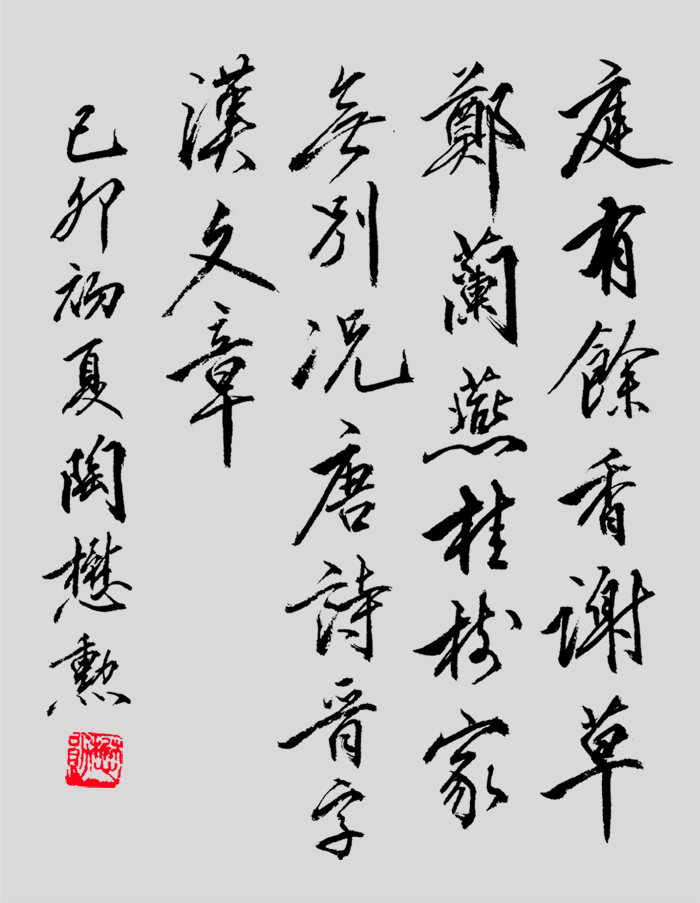 庭有餘香謝草
鄭蘭燕桂樹家
無別況唐詩晉字
漢文章
己卯初夏陶懋勲